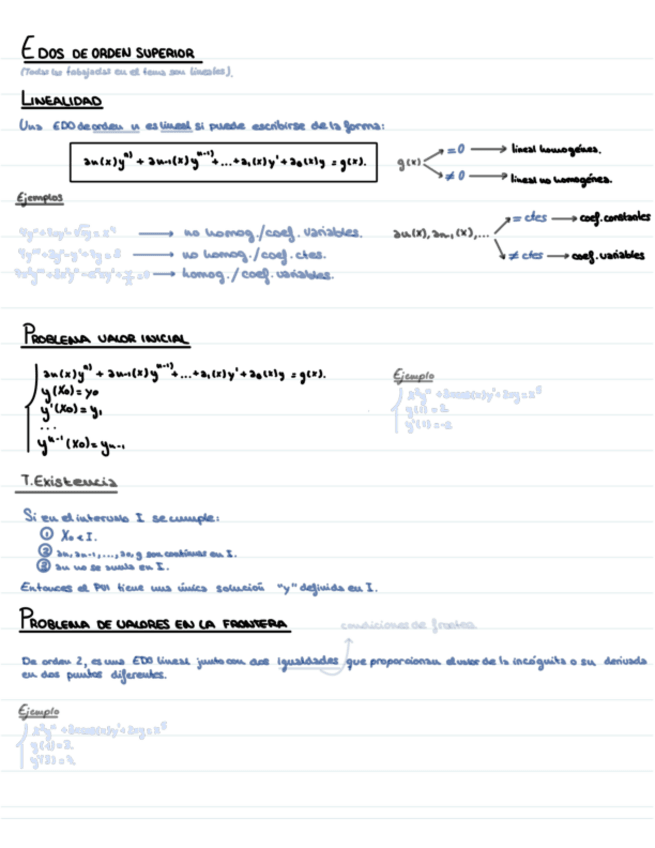 EDOS DE ORDEN SUPERIOR
(Todas las trabajadas en el tema son lineales).
LINEALIDAD
Una EDO de orden n es lineal si puede escribirse de la forma:
an(x)y^n) + an-1(x)y^n-1) + ... + a1(x)y' + a0(x)y = g(x).
g(x)
= 0 → lineal homogénea.
≠ 0 → lineal no homogénea.
Ejemplos
→ no homog./coef. variables.
→ no homog./coef. ctes.
→ homog./coef. variables.
an(x), an-1(x), ...
= ctes → coef. constantes
≠ ctes → coef. variables
PROBLEMA VALOR INICIAL
an(x)y^n) + an-1(x)y^n-1) + ... + a1(x)y' + a0(x)y = g(x).
y(x0) = y0
y'(x0) = y1
...
y^n-1(x0) = yn-1
Ejemplo
y(1) = 2
y'(1) = -2
T. Existencia
Si en el intervalo I se cumple:
① x0 ∈ I.
② an, an-1, ..., a0, g son continuas en I.
③ an no se anula en I.
Entonces el PVI tiene una única solución "y" definida en I.
PROBLEMA DE VALORES EN LA FRONTERA
condiciones de frontera
De orden 2, es una EDO lineal junto con dos igualdades que proporcionan el valor de la incógnita o su derivada
en dos puntos diferentes.
Ejemplo
y(1) = 2